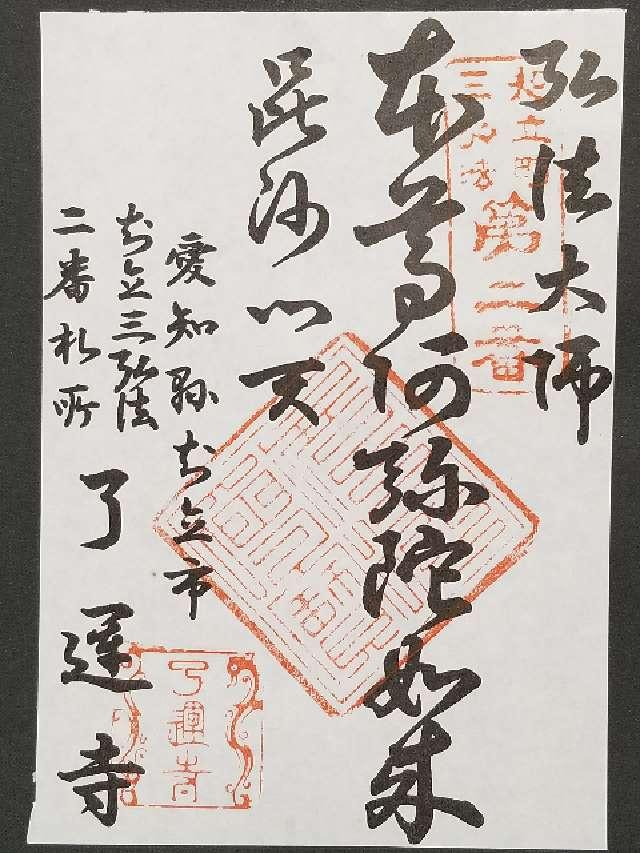 弘法大師
知立町
三弘法
第二番
本尊阿弥陀如来
毘沙門天
愛知縣知立市
知立三弘法
二番札所
了運寺
了運寺